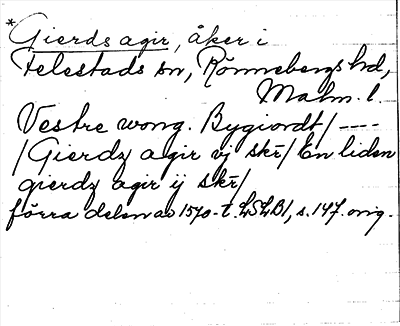 *Gierds agir, åker i
Felestads sn, Rönnebergs hd,
Malm. l.
Vestre wong. Bygiordt/ ----
/Gierdz agir vj skr/ En liden
gierdz agir ij skr/
förra delen av 1570-t. LSLB1, s. 147. orig.